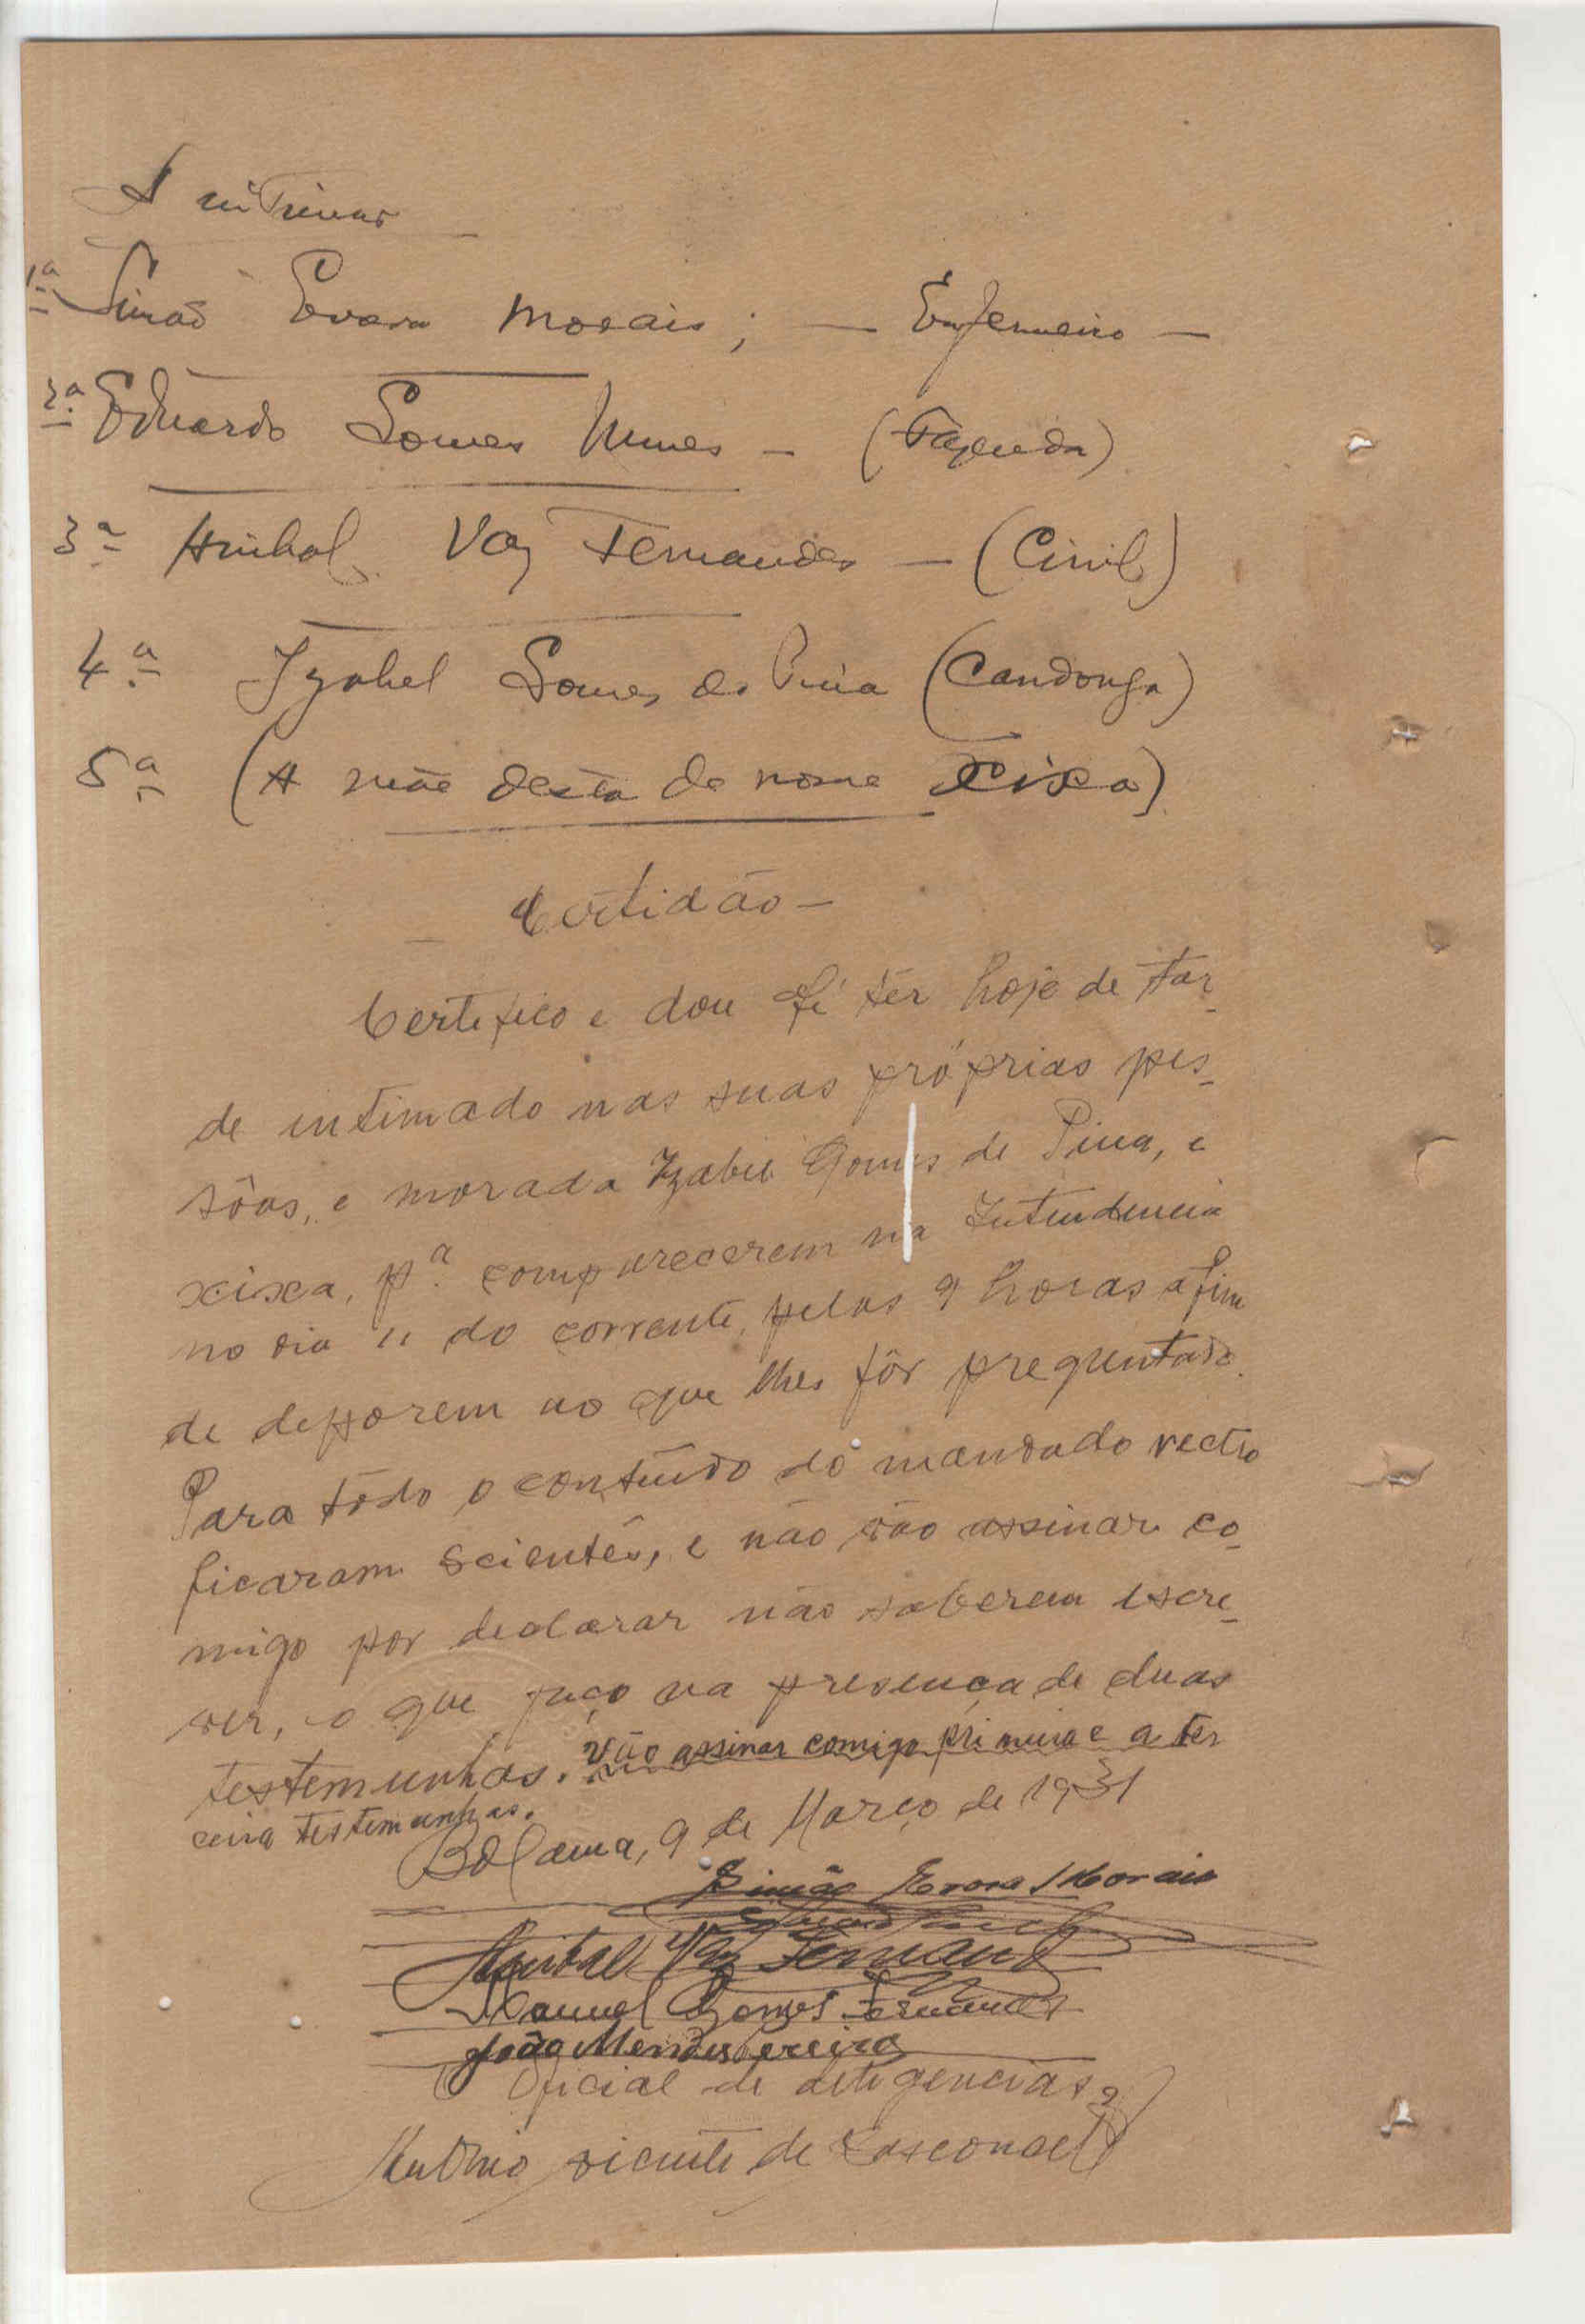 A intimar
1ª Simão Evora Morais; — Enfermeiro —
2ª Eduardo Gomes Nunes — (Fazenda)
3ª Anibal Vaz Fernandes — (Civil)
4ª Izabel Gomes de Pina (Candonga)
5ª (A mãe desta de nome Xixa)
— Certidão —
Certifico e dou fé ter hoje de tar-
de intimado nas suas próprias pes-
sôas, e morada Izabel Gomes de Pina, e
xixa, pª. comparecerem na Intendencia
no dia 11 do corrente, pelas 9 horas afim
de deporem ao que lhes fôr preguntado.
Para tôdo o contúido do mandado rectro
ficaram scientes, e não vão assinar co-
migo por declarar não saberem escre-
ver, o que faço na presença de duas
testemunhas. Vão assinar comigo primeira e a ter
ceira testemunhas.
Bolama, 9 de Março de 1931
Simão Evora Morais
Anibal Vaz Fernand
Manuel Gomes Fernandes
João Mendes Pereira
O Oficial de deligencias
Antonio vicente de Vasconcell